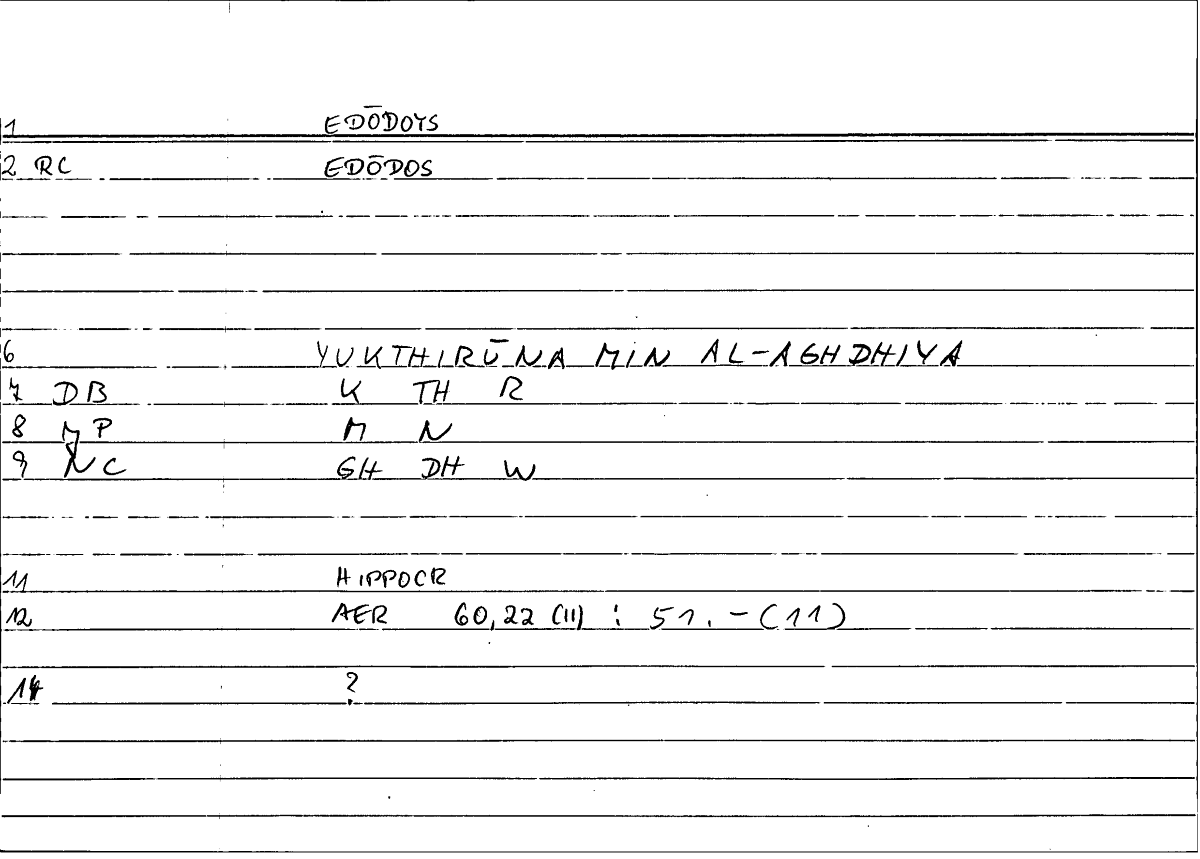 1 EDŌDOYS
2 RC EDŌDOS
6 YUKTHIRŪNA MIN AL-AGHDHIYA
7 DB K TH R
8 MP M N
9 NC GH DH W
11 HIPPOCR
12 AER 60,22 (11) : 51.-(11)
14 ?